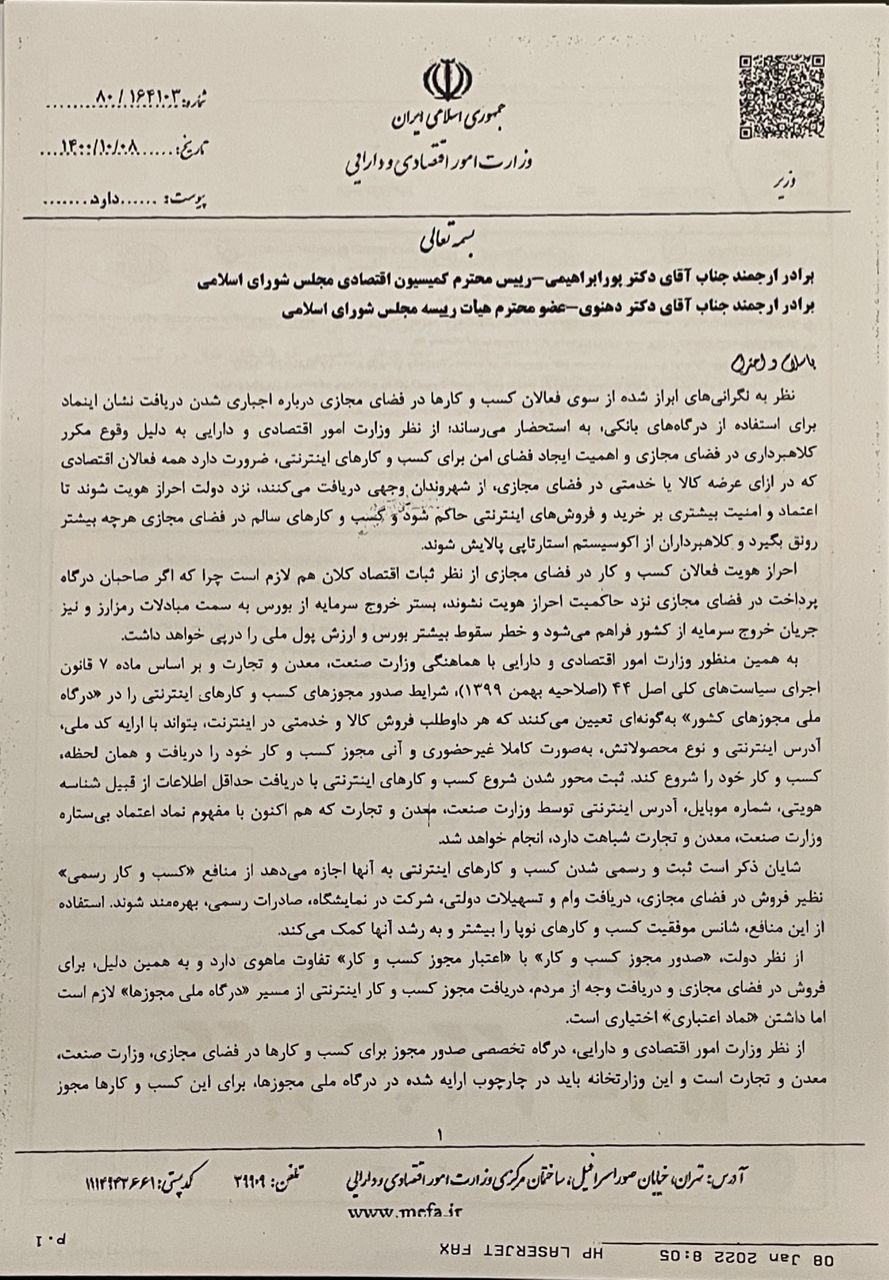 جمهوری اسلامی ایران
وزارت امور اقتصادی و دارایی
وزیر
شماره: ۸۰/۱۶۴۱۰۳
تاریخ: ۱۴۰۰/۱۰/۰۸
پیوست: دارد
بسمه تعالی
برادر ارجمند جناب آقای دکتر پورابراهیمی-رییس محترم کمیسیون اقتصادی مجلس شورای اسلامی
برادر ارجمند جناب آقای دکتر دهنوی-عضو محترم هیأت رییسه مجلس شورای اسلامی
با سلام و احترام
نظر به نگرانی‌های ابراز شده از سوی فعالان کسب و کارها در فضای مجازی درباره اجباری شدن دریافت نشان اینماد
برای استفاده از درگاه‌های بانکی، به استحضار می‌رساند؛ از نظر وزارت امور اقتصادی و دارایی به دلیل وقوع مکرر
کلاهبرداری در فضای مجازی و اهمیت ایجاد فضای امن برای کسب و کارهای اینترنتی، ضرورت دارد همه فعالان اقتصادی
که در ازای عرضه کالا یا خدمتی در فضای مجازی، از شهروندان وجهی دریافت می‌کنند، نزد دولت احراز هویت شوند تا
اعتماد و امنیت بیشتری بر خرید و فروش‌های اینترنتی حاکم شود و کسب و کارهای سالم در فضای مجازی هرچه بیشتر
رونق بگیرد و کلاهبرداران از اکوسیستم استارتاپی پالایش شوند.
احراز هویت فعالان کسب و کار در فضای مجازی از نظر ثبات اقتصاد کلان هم لازم است چرا که اگر صاحبان درگاه
پرداخت در فضای مجازی نزد حاکمیت احراز هویت نشوند، بستر خروج سرمایه از بورس به سمت مبادلات رمزارز و نیز
جریان خروج سرمایه از کشور فراهم می‌شود و خطر سقوط بیشتر بورس و ارزش پول ملی را درپی خواهد داشت.
به همین منظور وزارت امور اقتصادی و دارایی با هماهنگی وزارت صنعت، معدن و تجارت و بر اساس ماده ۷ قانون
اجرای سیاست‌های کلی اصل ۴۴ (اصلاحیه بهمن ۱۳۹۹)، شرایط صدور مجوزهای کسب و کارهای اینترنتی را در «درگاه
ملی مجوزهای کشور» به‌گونه‌ای تعیین می‌کنند که هر داوطلب فروش کالا و خدمتی در اینترنت، بتواند با ارایه کد ملی،
آدرس اینترنتی و نوع محصولاتش، به‌صورت کاملا غیرحضوری و آنی مجوز کسب و کار خود را دریافت و همان لحظه،
کسب و کار خود را شروع کند. ثبت محور شدن شروع کسب و کارهای اینترنتی با دریافت حداقل اطلاعات از قبیل شناسه
هویتی، شماره موبایل، آدرس اینترنتی توسط وزارت صنعت، معدن و تجارت که هم اکنون با مفهوم نماد اعتماد بی‌ستاره
وزارت صنعت، معدن و تجارت شباهت دارد، انجام خواهد شد.
شایان ذکر است ثبت و رسمی شدن کسب و کارهای اینترنتی به آنها اجازه می‌دهد از منافع «کسب و کار رسمی»
نظیر فروش در فضای مجازی، دریافت وام و تسهیلات دولتی، شرکت در نمایشگاه، صادرات رسمی، بهره‌مند شوند. استفاده
از این منافع، شانس موفقیت کسب و کارهای نوپا را بیشتر و به رشد آنها کمک می‌کند.
از نظر دولت، «صدور مجوز کسب و کار» با «اعتبار مجوز کسب و کار» تفاوت ماهوی دارد و به همین دلیل، برای
فروش در فضای مجازی و دریافت وجه از مردم، دریافت مجوز کسب و کار اینترنتی از مسیر «درگاه ملی مجوزها» لازم است
اما داشتن «نماد اعتباری» اختیاری است.
از نظر وزارت امور اقتصادی و دارایی، درگاه تخصصی صدور مجوز برای کسب و کارها در فضای مجازی، وزارت صنعت،
معدن و تجارت است و این وزارتخانه باید در چارچوب ارایه شده در درگاه ملی مجوزها، برای این کسب و کارها مجوز
۱
آدرس: تهران، خیابان صور اسرافیل، ساختمان مرکزی وزارت امور اقتصادی و دارایی تلفن: ۳۹۹۰۹ کد پستی: ۱۱۱۴۹۴۳۶۶۱
www.mefa.ir
08 Jan 2022 8:05 HP LASERJET FAX p.1